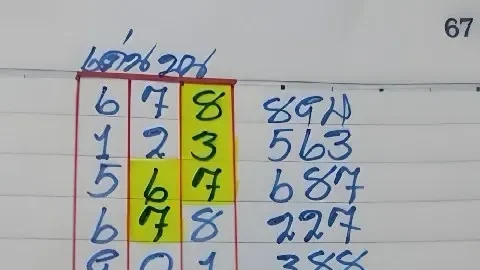 67
เด่นบน
6 7 8 891
1 2 3 563
5 6 7 687
6 7 8 227
9 0 1 388